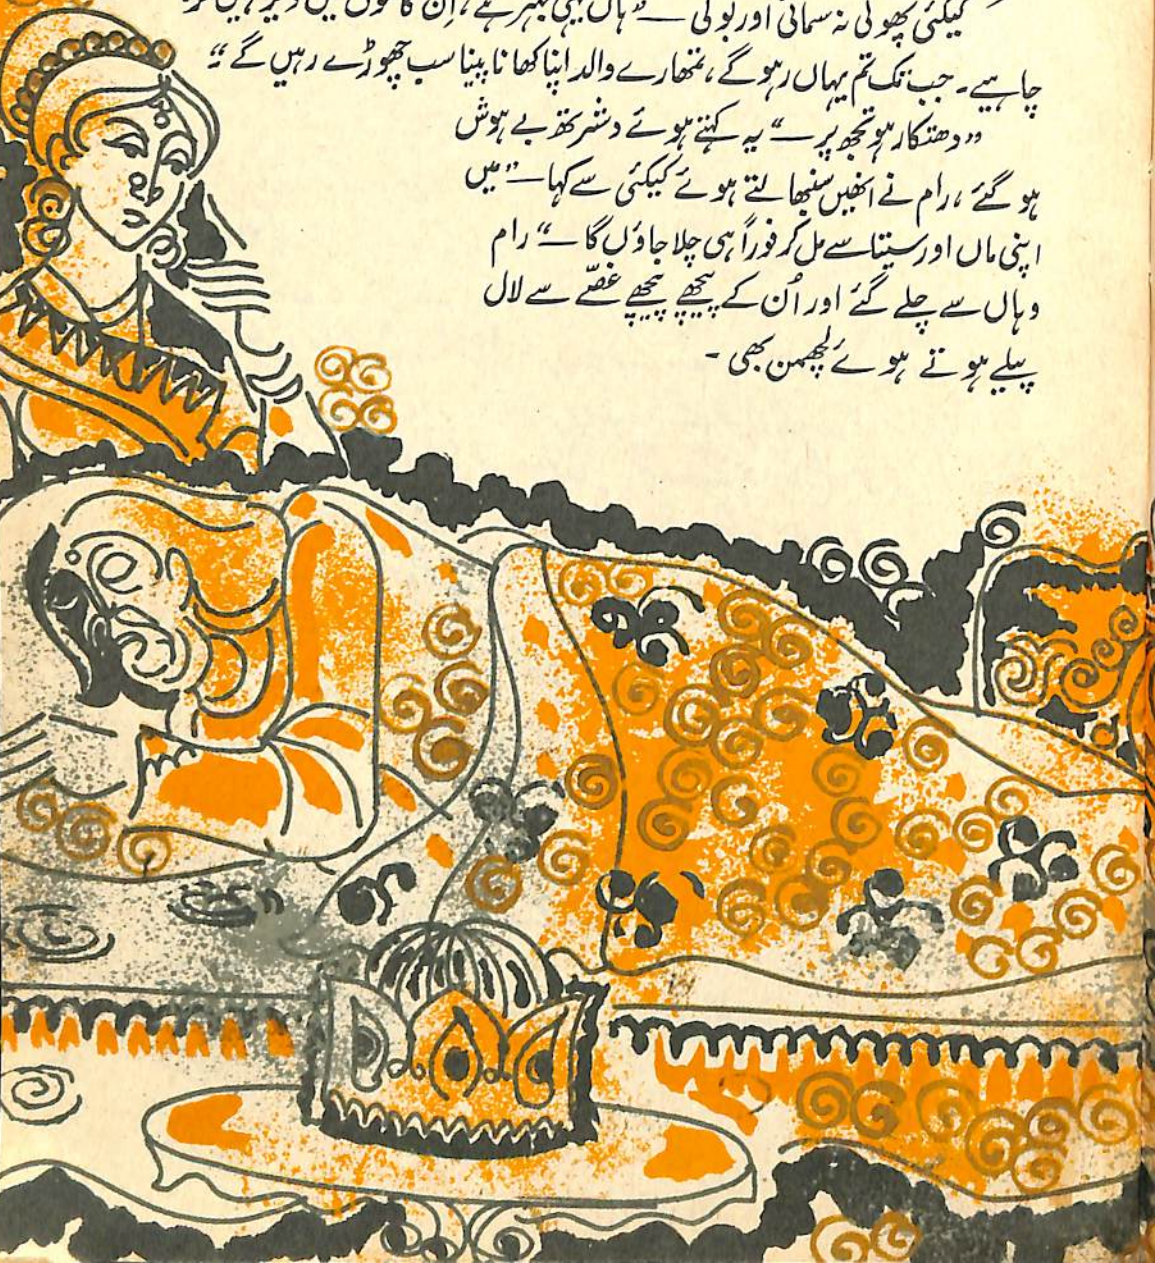 کیکئی پھولی نہ سمائی اور بولی — "ہاں یہی بہتر ہے، اِن کاموں میں دیر نہیں
چاہیے۔ جب تک تم یہاں رہو گے، تمھارے والد اپنا کھانا پینا سب چھوڑے رہیں گے"
"دھتکار ہو تجھ پر —" یہ کہتے ہوئے دشرتھ بے ہوش
ہو گئے، رام نے انھیں سنبھالتے ہوئے کیکئی سے کہا — "میں
اپنی ماں اور سیتا سے مل کر فوراً ہی چلا جاؤں گا —" رام
وہاں سے چلے گئے اور اُن کے پیچھے پیچھے غصّے سے لال
پیلے ہوتے ہوئے لچھمن بھی ۔